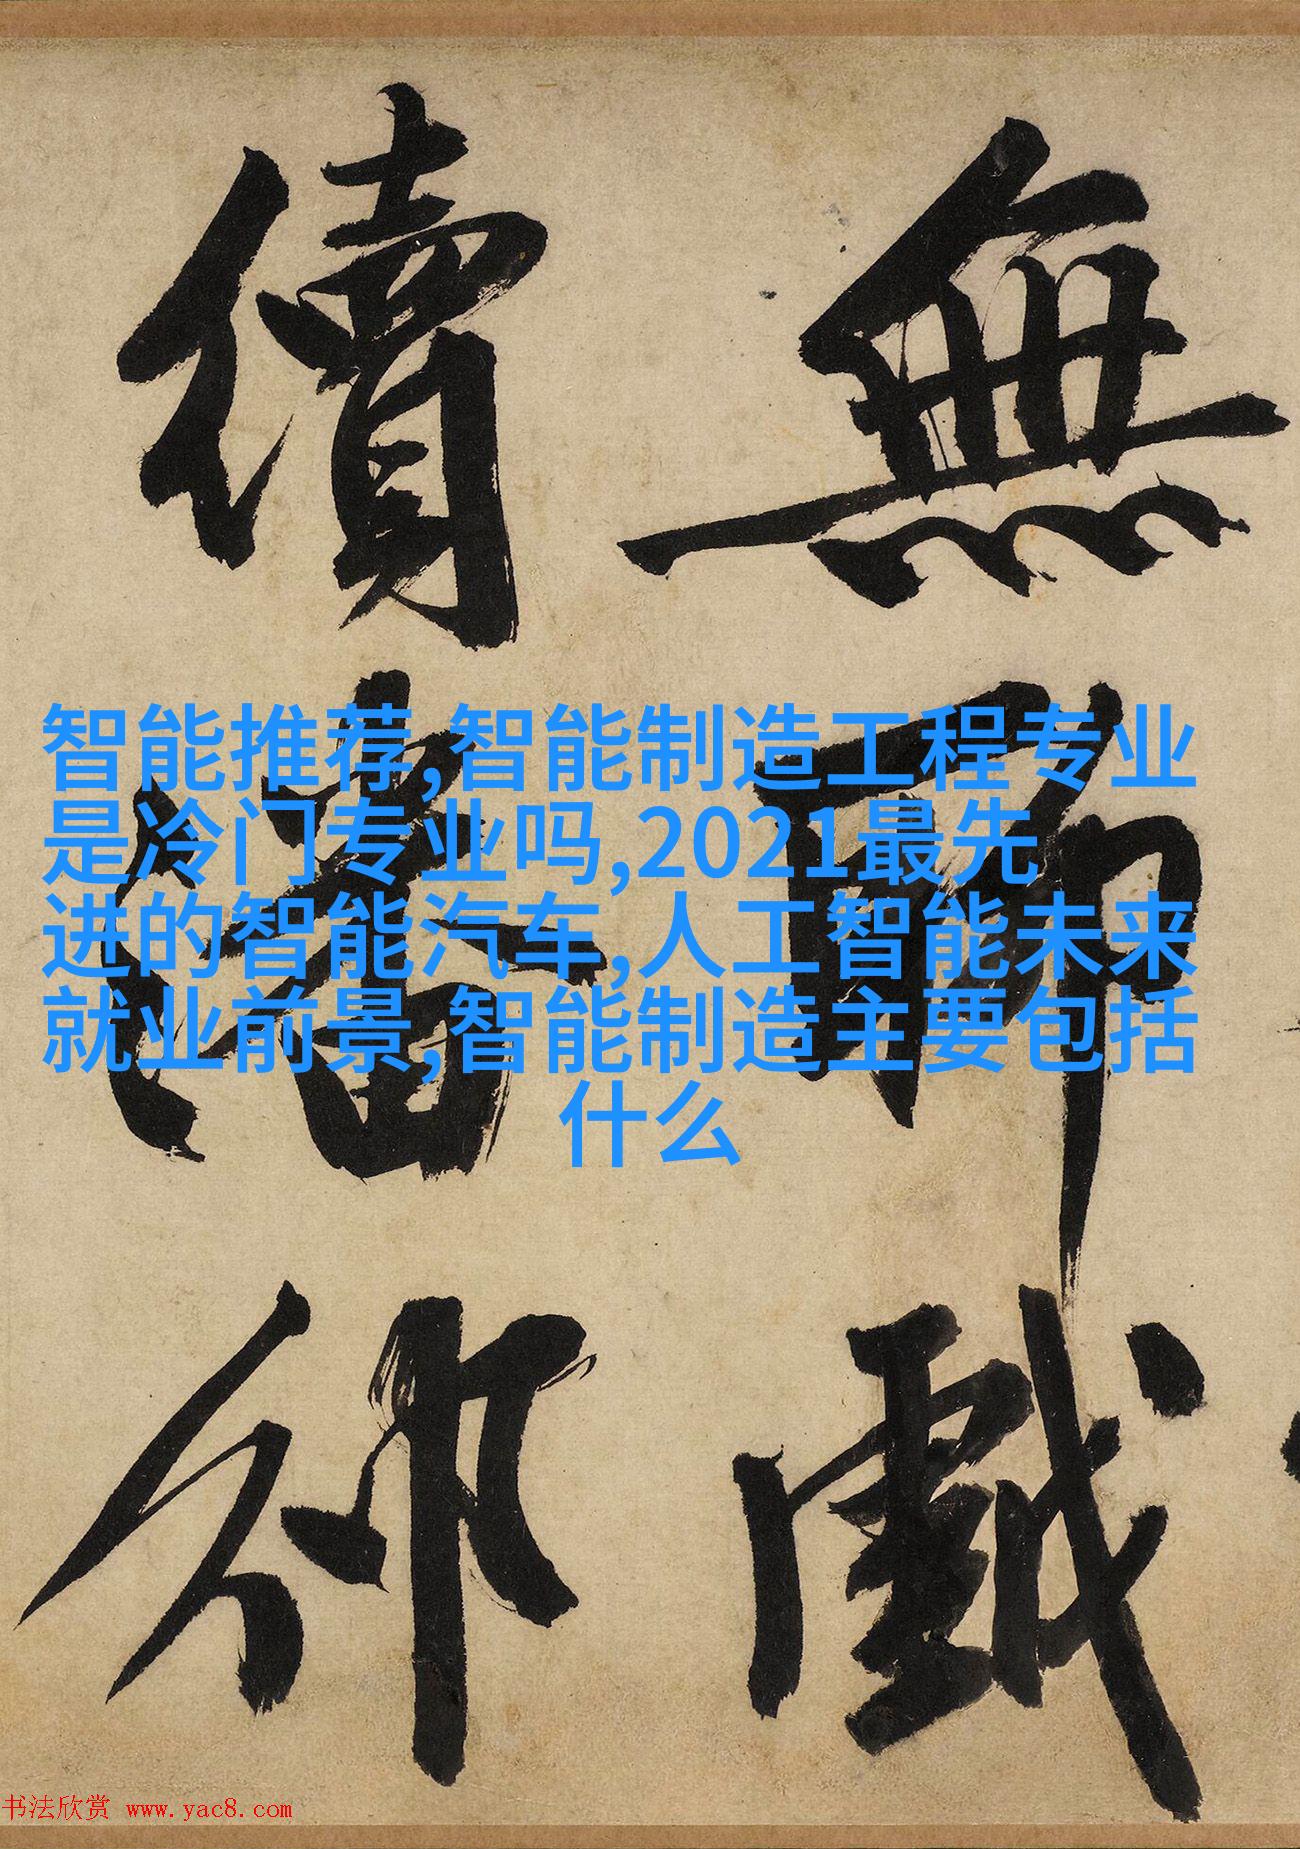 無聊戲
續潘邠
智能推荐,智能制造工程专业
是冷门专业吗,2021最先
进的智能汽车,人工智能未来
就业前景,智能制造主要包括
什么
书法欣赏 www.yac8.com